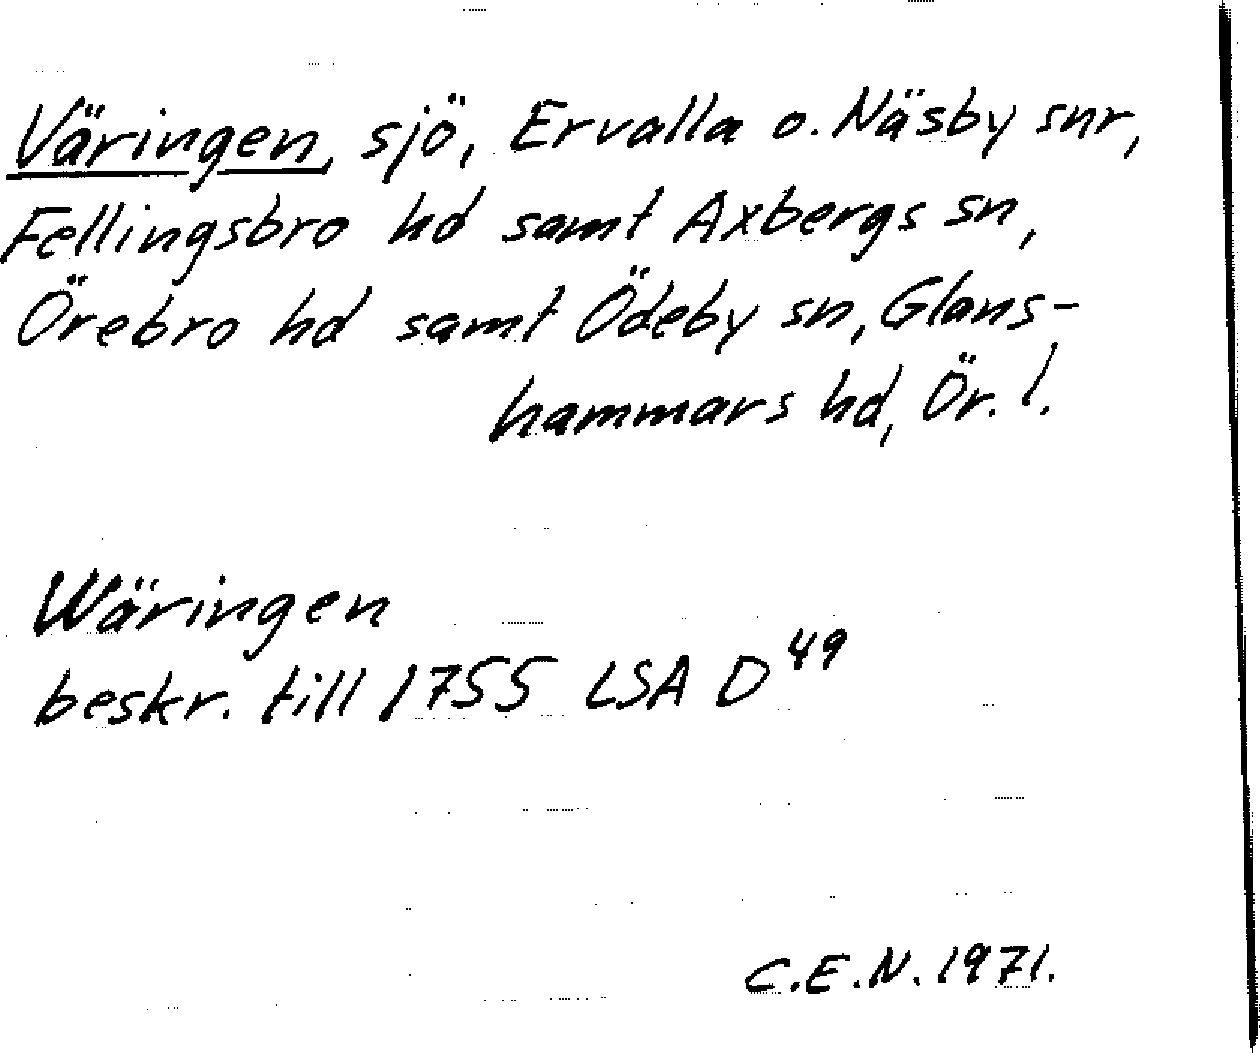 Väringen, sjö, Ervalla o. Näsby snr,
Fellingsbro hd samt Axbergs sn,
Örebro hd samt Ödeby sn, Glans-
hammars hd, Ör. l.
Wäringen
beskr. till 1755 LSA D 49
C.E.N. 1971.